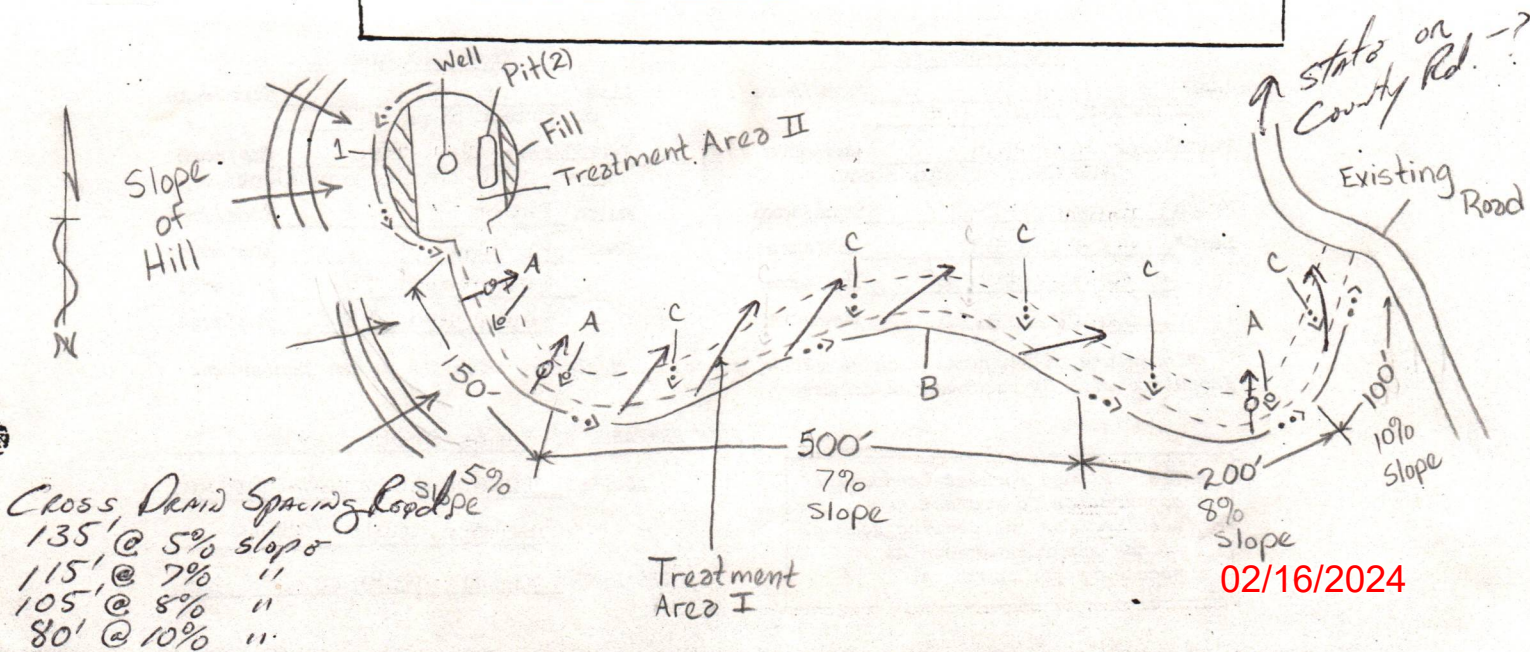 Well
Pit(2)
Fill
Treatment Area II
1
Slope
of
Hill
N
State or
County Rd. -?
Existing
Road
A
A
C
C
C
C
A
C
B
150
5%
slope
500'
7%
Slope
200'
8%
Slope
100'
10%
Slope
Treatment
Area I
Cross Drain Spacing Reqd
135' @ 5% slope
115' @ 7% "
105' @ 8% "
80' @ 10% "
02/16/2024